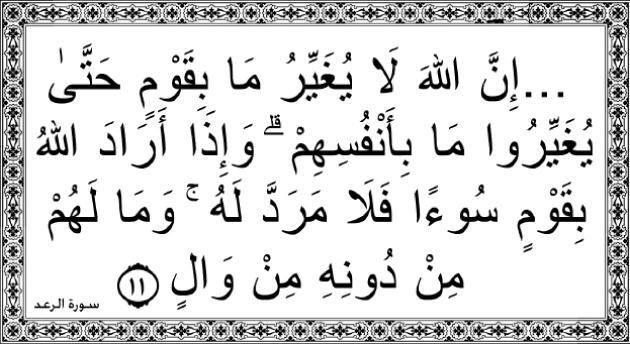 ...إِنَّ اللهَ لَا يُغَيِّرُ مَا بِقَوْمٍ حَتَّىٰ
يُغَيِّرُوا مَا بِأَنْفُسِهِمْ ۗ وَإِذَا أَرَادَ اللهُ
بِقَوْمٍ سُوءًا فَلَا مَرَدَّ لَهُ ۚ وَمَا لَهُمْ
مِنْ دُونِهِ مِنْ وَالٍ ١١
سورة الرعد